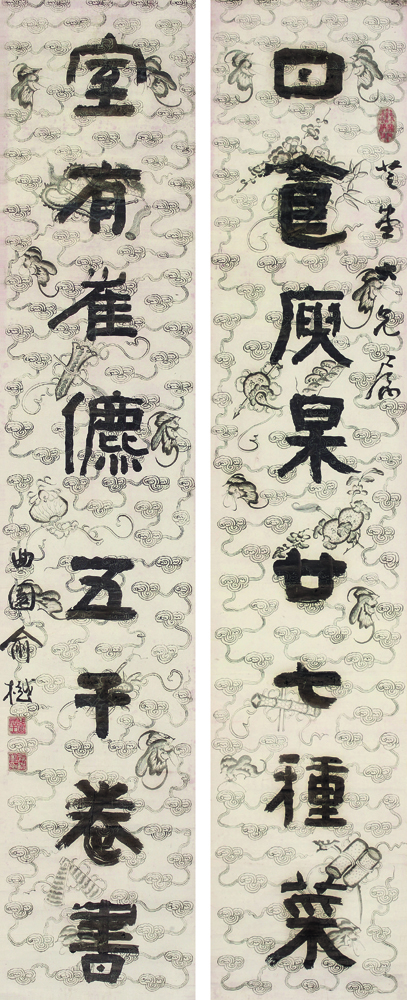 大兄屬
日食庾杲廿七種菜
室有崔儦五千卷書
曲園俞樾